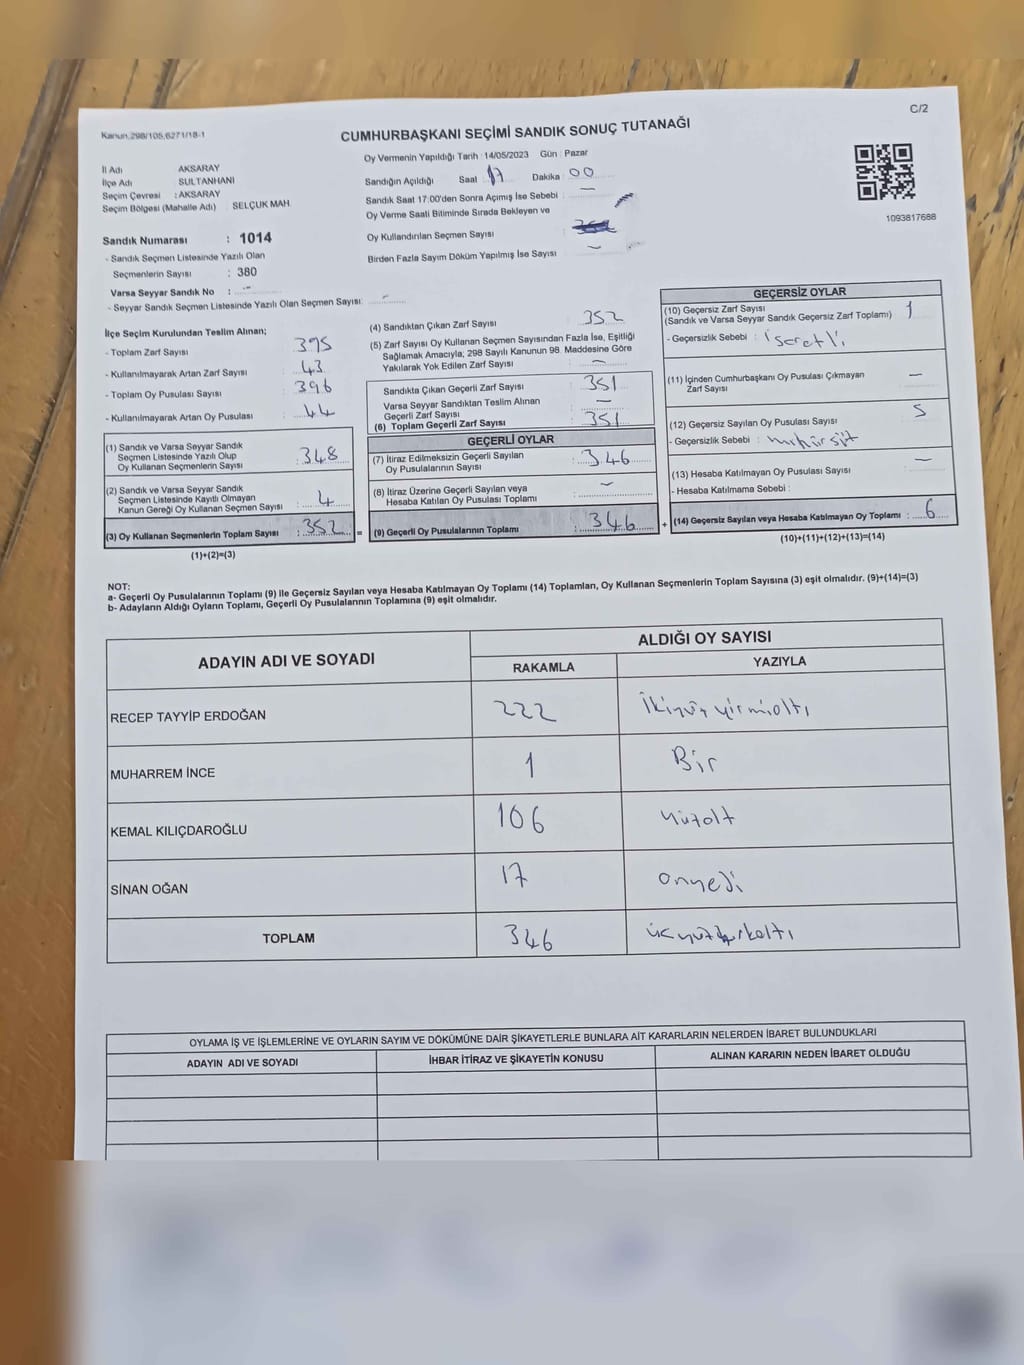 C/2
Kanun,298/105,6271/18-1
CUMHURBAŞKANI SEÇİMİ SANDIK SONUÇ TUTANAĞI
İl Adı AKSARAY
İlçe Adı SULTANHANI
Seçim Çevresi : AKSARAY
Seçim Bölgesi (Mahalle Adı) SELÇUK MAH.
Sandık Numarası : 1014
- Sandık Seçmen Listesinde Yazılı Olan
Seçmenlerin Sayısı : 380
Varsa Seyyar Sandık No : -
- Seyyar Sandık Seçmen Listesinde Yazılı Olan Seçmen Sayısı: -
Oy Vermenin Yapıldığı Tarih : 14/05/2023 Gün : Pazar
Sandığın Açıldığı Saat : 17 Dakika : 00
Sandık Saat 17:00'den Sonra Açımış İse Sebebi : -
Oy Verme Saati Bitiminde Sırada Bekleyen ve
Oy Kullandırılan Seçmen Sayısı :
Birden Fazla Sayım Döküm Yapılmış İse Sayısı : -
1093817688
İlçe Seçim Kurulundan Teslim Alınan;
- Toplam Zarf Sayısı : 395
- Kullanılmayarak Artan Zarf Sayısı : 43
- Toplam Oy Pusulası Sayısı : 396
- Kullanılmayarak Artan Oy Pusulası : 44
(1) Sandık ve Varsa Seyyar Sandık
Seçmen Listesinde Yazılı Olup
Oy Kullanan Seçmenlerin Sayısı : 348
(2) Sandık ve Varsa Seyyar Sandık
Seçmen Listesinde Kayıtlı Olmayan
Kanun Gereği Oy Kullanan Seçmen Sayısı : 4
(3) Oy Kullanan Seçmenlerin Toplam Sayısı : 352 =
(1)+(2)=(3)
(4) Sandıktan Çıkan Zarf Sayısı : 352
(5) Zarf Sayısı Oy Kullanan Seçmen Sayısından Fazla İse, Eşitliği
Sağlamak Amacıyla, 298 Sayılı Kanunun 98. Maddesine Göre
Yakılarak Yok Edilen Zarf Sayısı : -
Sandıkta Çıkan Geçerli Zarf Sayısı : 351
Varsa Seyyar Sandıktan Teslim Alınan
Geçerli Zarf Sayısı : -
(6) Toplam Geçerli Zarf Sayısı : 351
GEÇERLİ OYLAR
(7) İtiraz Edilmeksizin Geçerli Sayılan
Oy Pusulalarının Sayısı : 346
(8) İtiraz Üzerine Geçerli Sayılan veya
Hesaba Katılan Oy Pusulası Toplamı : -
(9) Geçerli Oy Pusulalarının Toplamı : 346 +
GEÇERSİZ OYLAR
(10) Geçersiz Zarf Sayısı
(Sandık ve Varsa Seyyar Sandık Geçersiz Zarf Toplamı) : 1
- Geçersizlik Sebebi : İşaretli
(11) İçinden Cumhurbaşkanı Oy Pusulası Çıkmayan
Zarf Sayısı : -
(12) Geçersiz Sayılan Oy Pusulası Sayısı : 5
- Geçersizlik Sebebi :
(13) Hesaba Katılmayan Oy Pusulası Sayısı : -
- Hesaba Katılmama Sebebi :
(14) Geçersiz Sayılan veya Hesaba Katılmayan Oy Toplamı : 6
(10)+(11)+(12)+(13)=(14)
NOT:
a- Geçerli Oy Pusulalarının Toplamı (9) ile Geçersiz Sayılan veya Hesaba Katılmayan Oy Toplamı (14) Toplamları, Oy Kullanan Seçmenlerin Toplam Sayısına (3) eşit olmalıdır. (9)+(14)=(3)
b- Adayların Aldığı Oyların Toplamı, Geçerli Oy Pusulalarının Toplamına (9) eşit olmalıdır.
ADAYIN ADI VE SOYADI ALDIĞI OY SAYISI
RAKAMLA YAZIYLA
RECEP TAYYİP ERDOĞAN 222 İkiyüz yirmialtı
MUHARREM İNCE 1 Bir
KEMAL KILIÇDAROĞLU 106 Yüzalt
SİNAN OĞAN 17 onyedi
TOPLAM 346 üçyüzkırkaltı
OYLAMA İŞ VE İŞLEMLERİNE VE OYLARIN SAYIM VE DÖKÜMÜNE DAİR ŞİKAYETLERLE BUNLARA AİT KARARLARIN NELERDEN İBARET BULUNDUKLARI
ADAYIN ADI VE SOYADI İHBAR İTİRAZ VE ŞİKAYETİN KONUSU ALINAN KARARIN NEDEN İBARET OLDUĞU